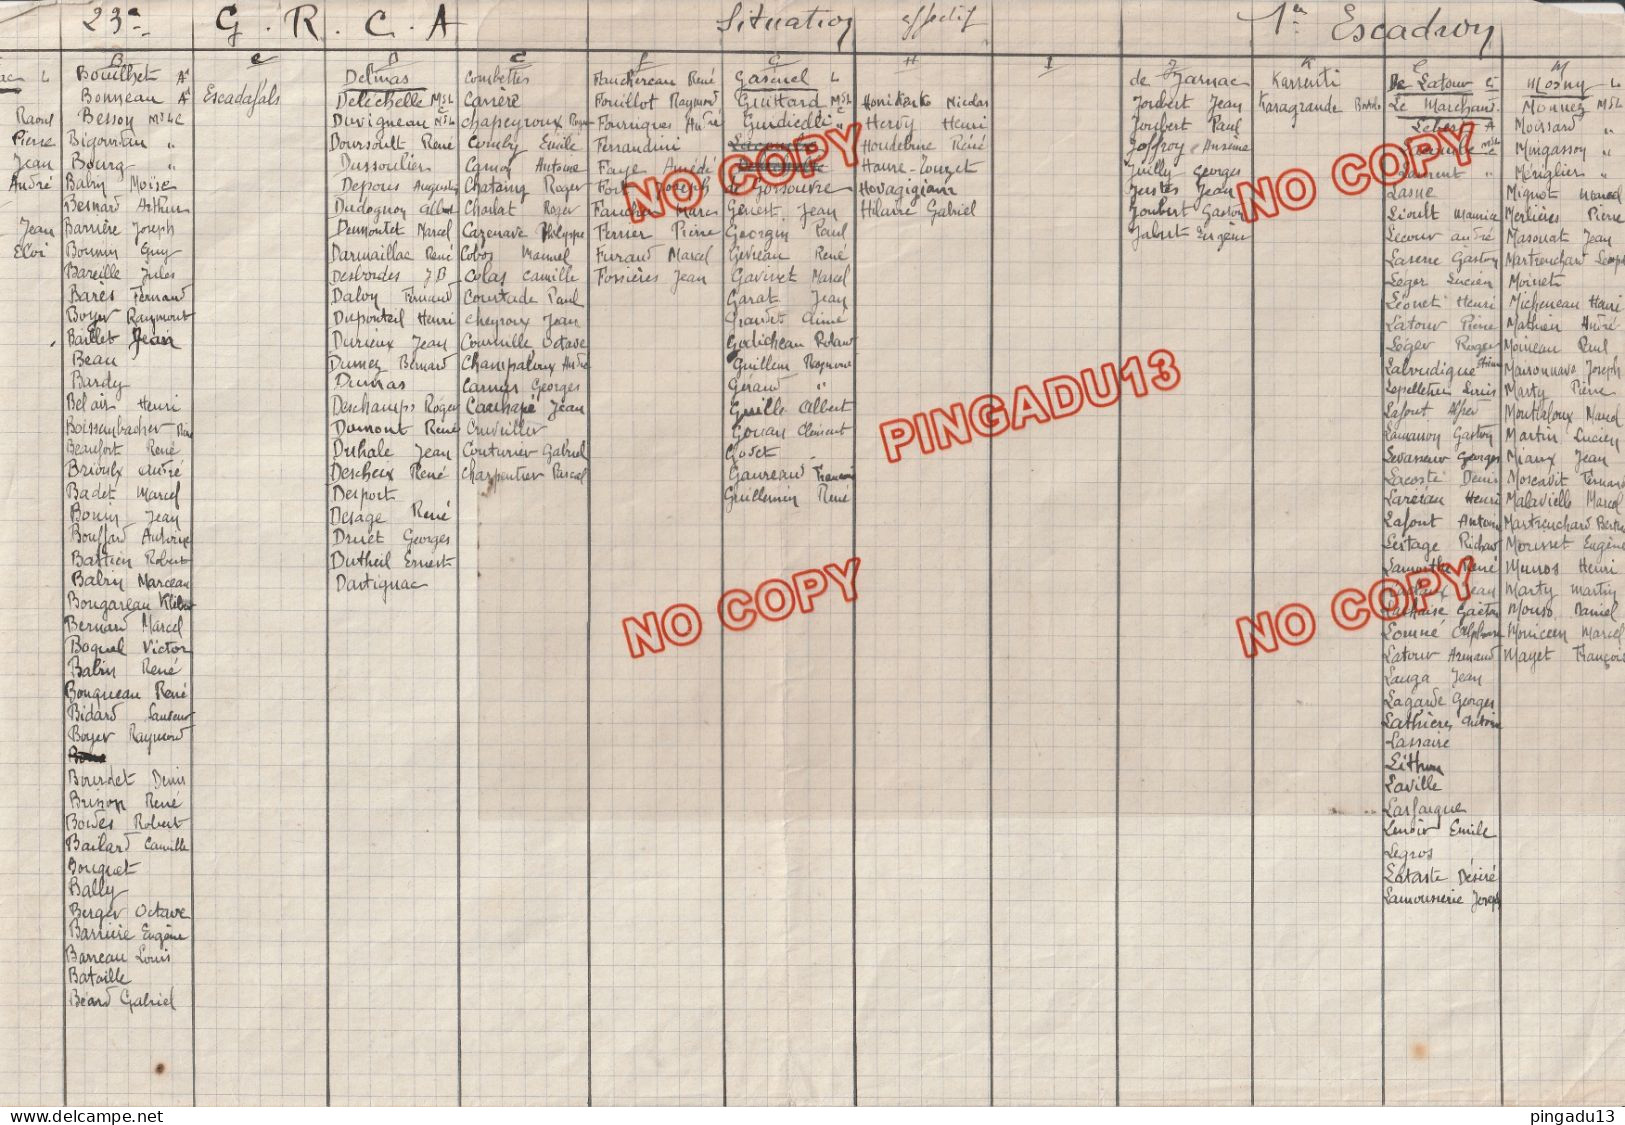 23e G. R. C. A Situation effectif 1er Escadron
L
Raoul
Pierre
Jean
André
Jean
Eloi
B
Bouilhet At
Bonneau At
Besson MsLC
Bigourdan "
Bourg "
Babin Moïse
Besnard Arthur
Barrière Joseph
Bounin Guy
Bareille Jules
Barès Fernand
Boyer Raymond
Baillet Jean
Beau
Bardy
Belair Henri
Boissenbacher
Beaufort René
Brioulx André
Badet Marcel
Bouin Jean
Bouffard Antoine
Bastien Robert
Babin Marceau
Bougareau Kléber
Bernard Marcel
Boquel Victor
Babin René
Bouqueau René
Bidard
Boyer Raymond
Bourdet Denis
Brisson René
Bordes Robert
Bailard Camille
Bouquet
Bally
Berger Octave
Barrière Eugène
Barreau Louis
Bataille
Béard Gabriel
e
Escadafals
D
Delmas
Deléchelle MSL
Duvigneau MSL
Doursoult René
Dussoulier
Depous Augustin
Dudognon Albert
Demontet Marcel
Darmaillac René
Desbordes JB
Daloy Fernand
Duponteil Henri
Durieux Jean
Dumez Bernard
Dumas
Deschamps Roger
Dumont René
Duhale Jean
Descheix René
Desport
Desage René
Druet Georges
Dutheil Ernest
Dartignac
C
Combettes
Carrère
Chapeyroux Roger
Comby Émile
Camoy Antoine
Chataing Roger
Chorlat Roger
Cazenave Philippe
Cobos Manuel
Colas Camille
Courtade Paul
Cheyroux Jean
Cournille Octave
Champaloux André
Camus Georges
Cachapé Jean
Cruveiller
Couturier Gabriel
Charpentier Pascal
F
Fauchereau René
Fouillot Raymond
Fournigues André
Ferrandini
Faye Amédé
Fort Joseph
Faucher Marc
Ferrier Pierre
Furaud Marcel
Forsières Jean
G
Gasmel L
Guittard MSL
Guidicelli C
de Gorsoutre
Genest Jean
Georgin Paul
Gevreau René
Gavinet Marcel
Garat Jean
Grandet Aimé
Godicheau Roland
Guillem Raymond
Géraud "
Guille Albert
Gouan Clément
Godet
Gaureau François
Guillemin René
H
Honikenko Nicolas
Hervy Henri
Houdebine René
Haure
Hovagigian
Hilaire Gabriel
I
J
de Jarnac
Joubert Jean
Joubert Paul
Joffroy Anselme
Juilly Georges
Justes Jean
Joubert Gaston
Jabut Eugène
K
Karsenti
Karagrande
L
De Latour L
Le Marchand
Lebert A
Laurent "
Lasne
Lioult Maurice
Lecour André
Laserre Gaston
Léger Lucien
Léonet Henri
Latour Pierre
Léger Roger
Labrudigue
Lepelletier Louis
Lafont Alfred
Lamasson Gaston
Levasseur Georges
Lacoste Denis
Lareau Henri
Lafont Antoine
Lestage Richard
Lamothe René
Jean
Lachaise Gaëton
Lomné Alphonse
Latour Armand
Lauga Jean
Lagarde Georges
Lathière Antoine
Lassaire
Lithon
Laville
Lasfargue
Lenoir Emile
Legros
Lataste Désiré
Lamousserie Joseph
M
Mosny L
Monnez MSL
Moissard "
Mingasson "
Mériglier "
Mignot Marcel
Merlières Pierre
Masouat Jean
Martrenchard
Moinet
Micheneau Henri
Mathieu André
Moineau Paul
Maisonnave Joseph
Marty Pierre
Montlaloux Marcel
Martin Lucien
Miaux Jean
Moscavit Fernand
Malavielle Marcel
Martrenchard
Mousset Eugène
Munos Henri
Marty Martin
Mouso Daniel
Moniceen Marcel
Mayet François
NO COPY
NO COPY
PINGADU13
NO COPY
NO COPY
delcampe.net
pingadu13